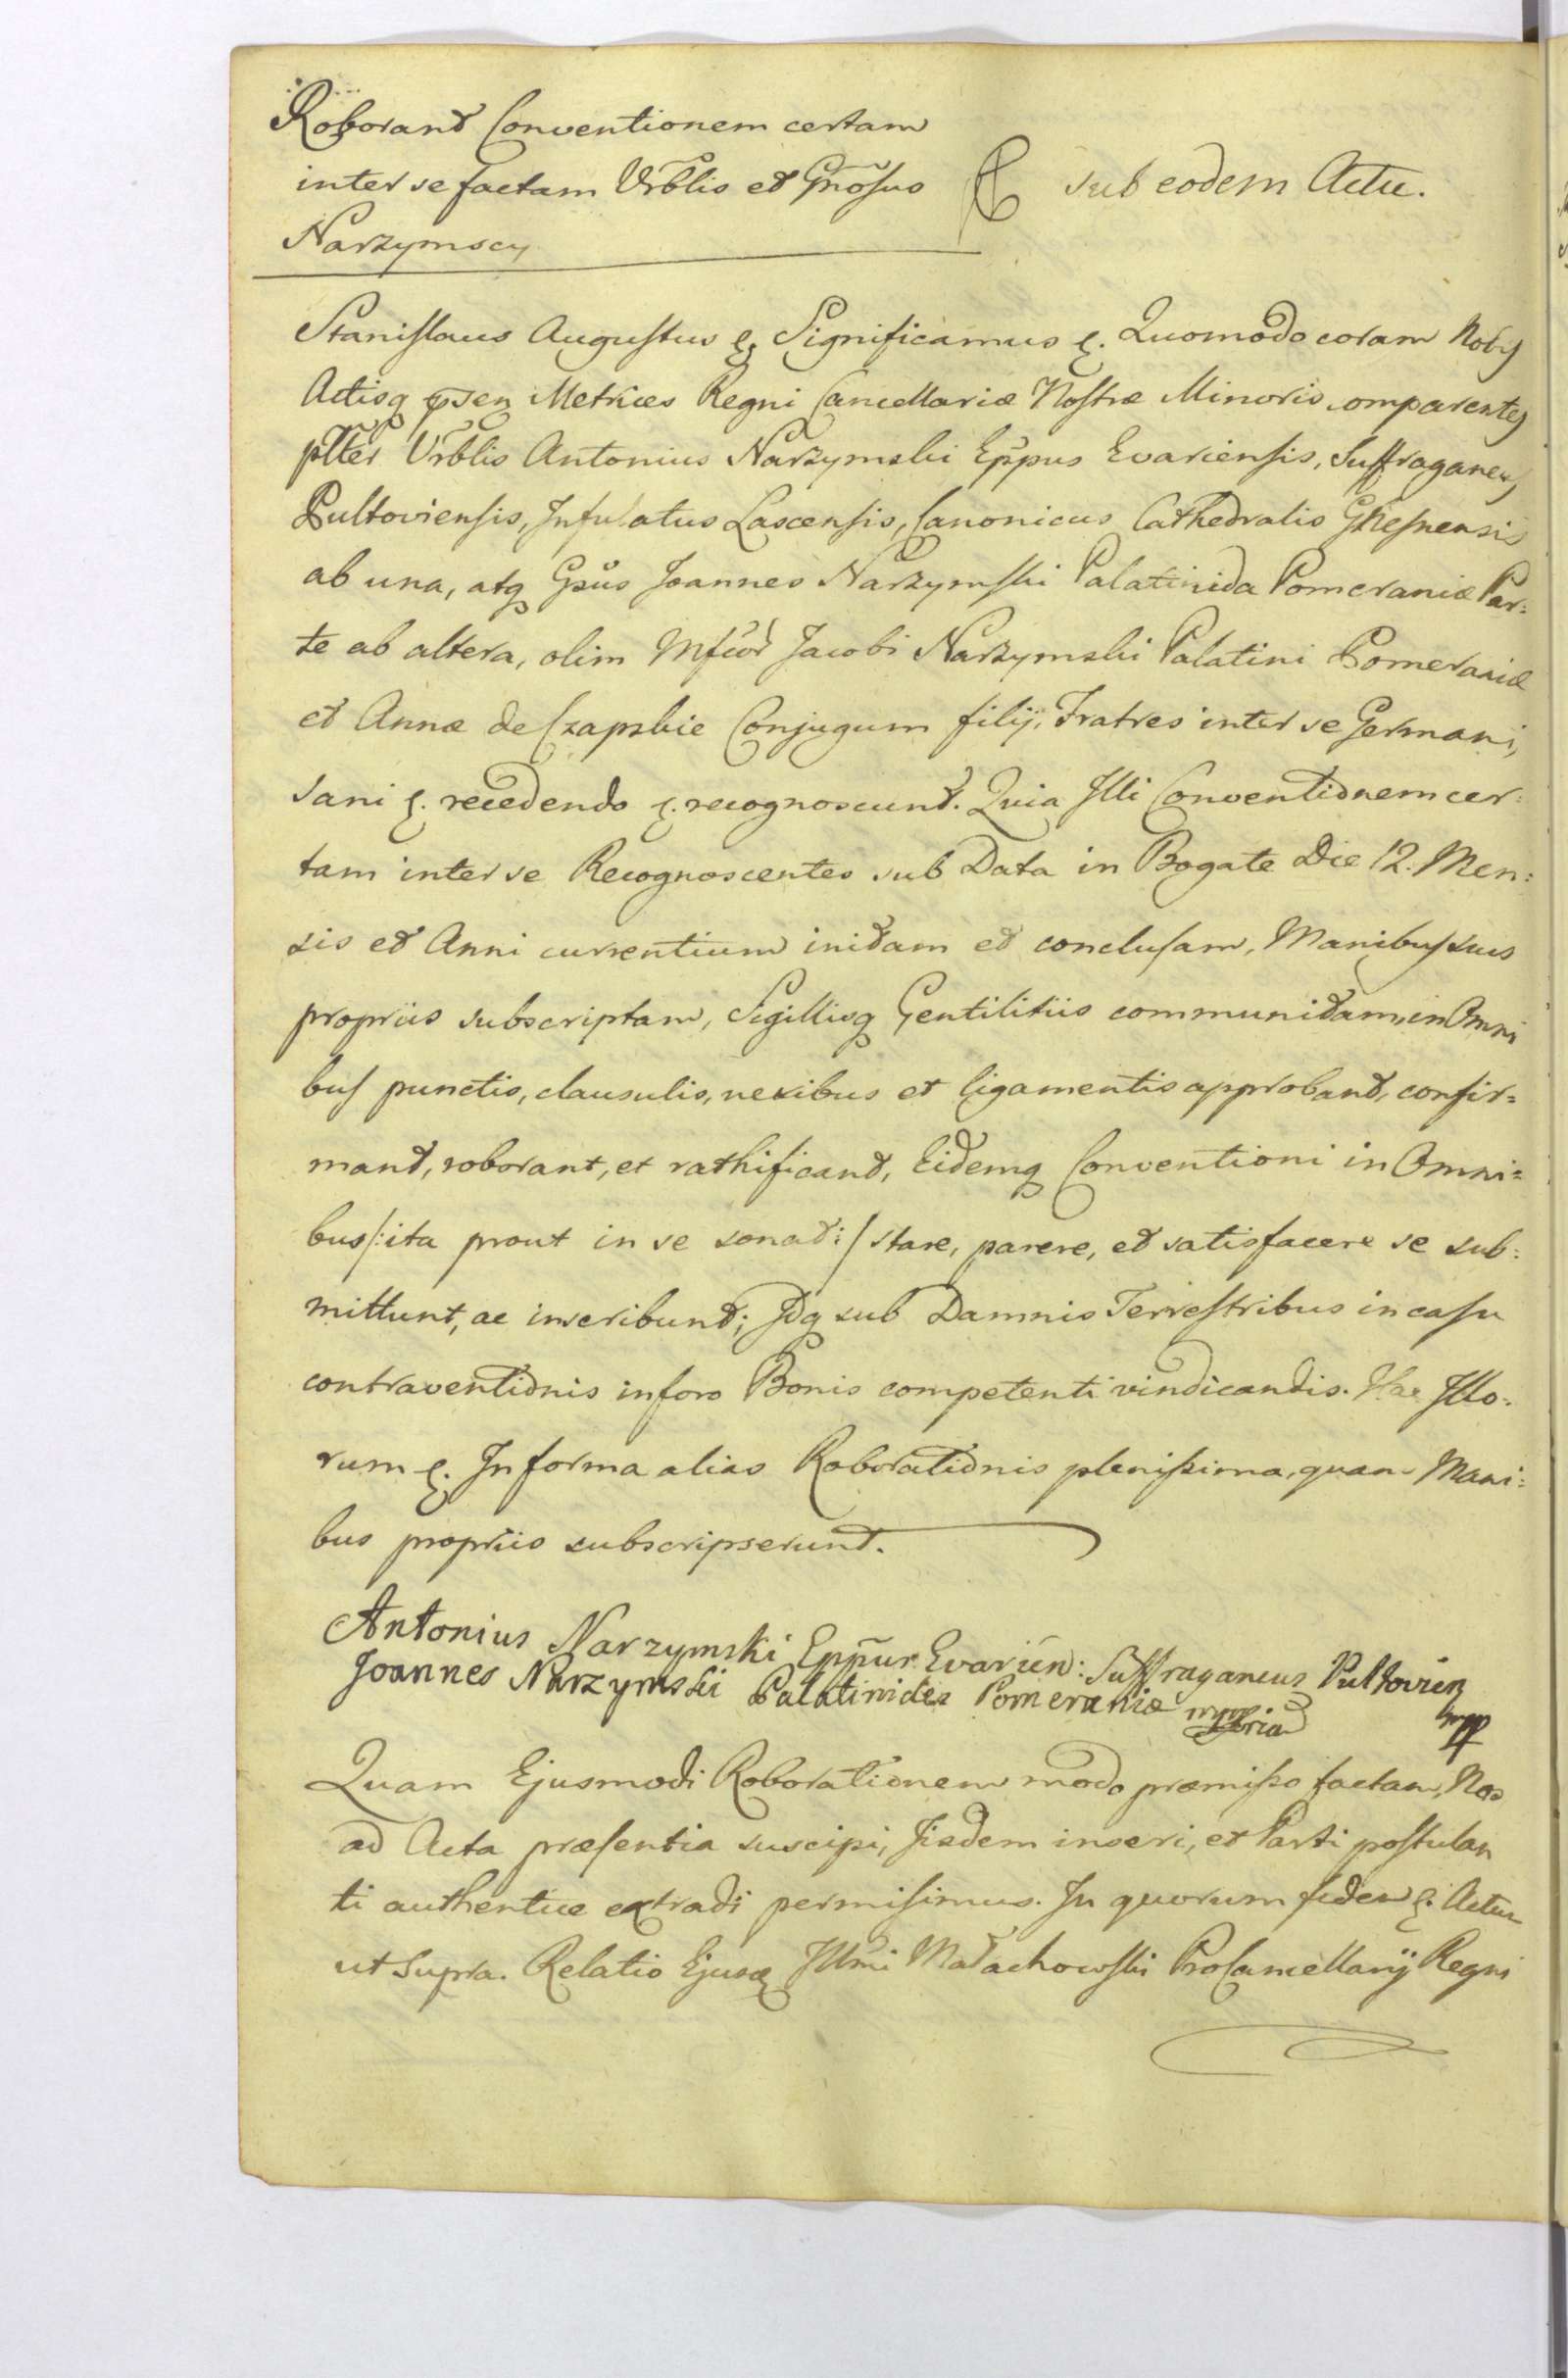 Roborant Conventionem certam
inter se factam Vrblis et Gnosus
Narzymscy
sub eodem Actu.
Stanislaus Augustus &. Significamus &. Quomodo coram Nobis
Actisq psen Metrices Regni Cancellariæ Nostræ Minoris comparentes
pltter Vrblis Antonius Narzymski Eppus Evariensis, Suffraganeus
Pultoviensis, Infulatus Lascensis, Canonicus Cathedralis Gnesnensis
ab una, atq Gsus Joannes Narzymski Palatinida Pomeraniæ Par=
te ab altera, olim Mfcor Jacobi Narzymski Palatini Pomeraniæ
et Annæ de Czapskie Conjugum filij, Fratres inter se Germani,
sani &. recedendo &. recognoscunt. Quia Illi Conventionem cer=
tam inter se Recognoscentes sub Data in Bogate Die 12. Men=
sis et Anni currentium initam et conclusam, Manibus suis
propriis subscriptam, Sigillisq Gentilitiis communitam, in Omni
bus punctis, clausulis, nexibus et ligamentis approbant, confir=
mant, roborant, et rathificant, Eidemq Conventioni in Omni=
bus /: ita prout in se sonat :/ stare, parere, et satisfacere se sub=
mittunt, ac inscribunt; Idq sub Damnis Terrestribus in casu
contraventionis in foro Bonis competenti vindicandis. Hac Illo=
rum &. In forma alias Roborationis plenissima, quam Mani=
bus propriis subscripserunt.
Antonius Narzymski Eppur Evarien: Suffraganeus Pultovien
mpp
Joannes Narzymski Palatinides Pomeraniæ mppria
Quam Ejusmodi Roborationem modo præmisso factam, Nos
ad Acta præsentia suscipi, Iisdem inseri, et Parti postulan
ti authentice extradi permisimus. In quorum fidem &. Actum
ut Supra. Relatio Ejusq Illmi Małachowski ProCancellarij Regni